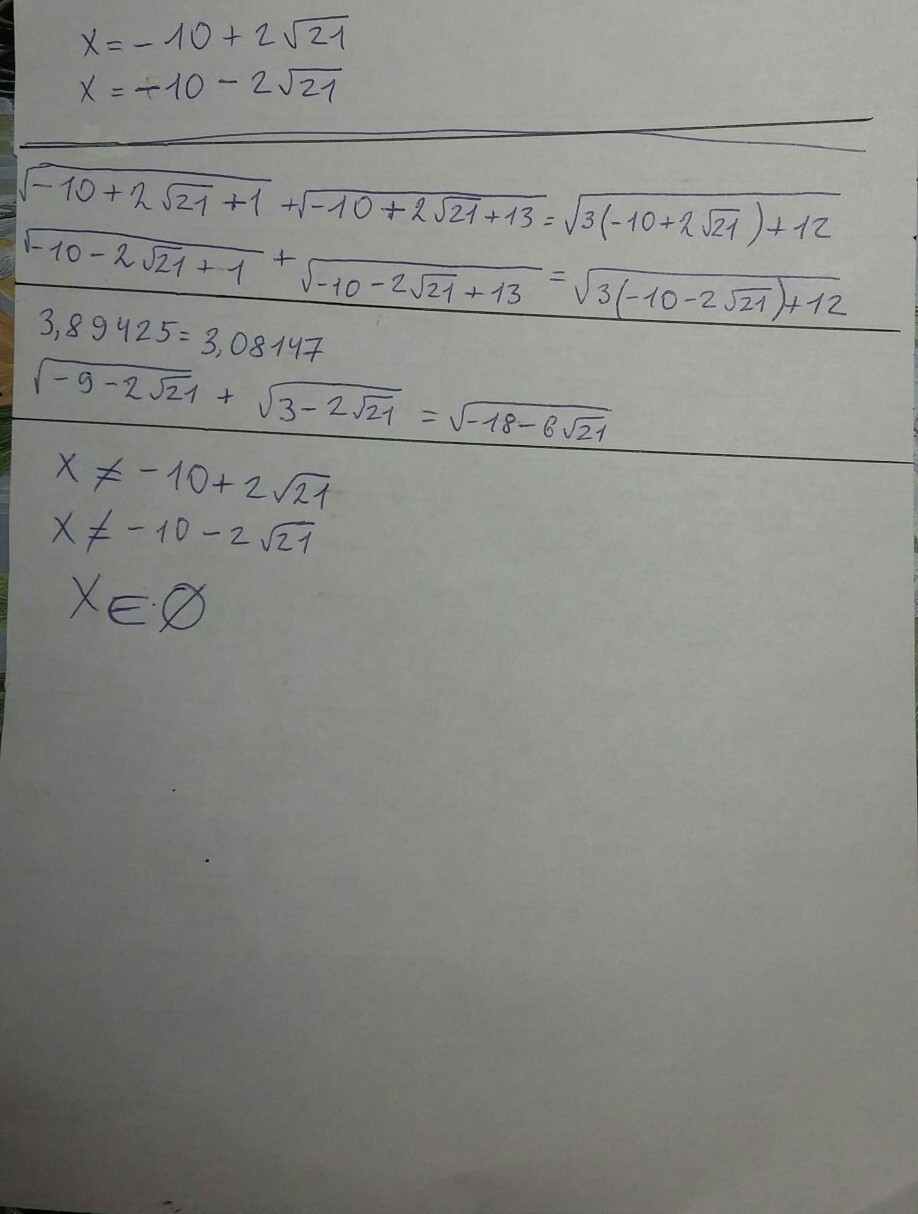 x = -10 + 2√21
x = -10 - 2√21
√(-10 + 2√21 + 1) + √(-10 + 2√21 + 13) = √(3(-10 + 2√21) + 12)
√(-10 - 2√21 + 1) + √(-10 - 2√21 + 13) = √(3(-10 - 2√21) + 12)
3,89425 = 3,08147
√(-9 - 2√21) + √(3 - 2√21) = √(-18 - 6√21)
x ≠ -10 + 2√21
x ≠ -10 - 2√21
x ∈ ∅